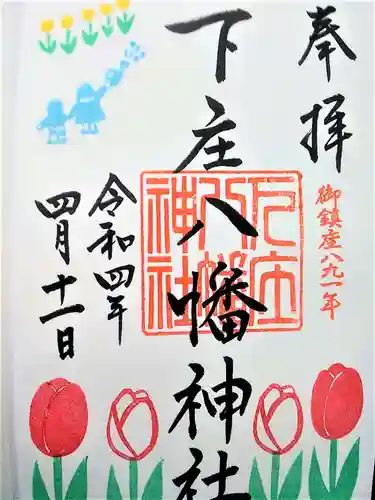 奉拝
御鎮座八九一年
下庄八幡神社
令和四年
四月十一日